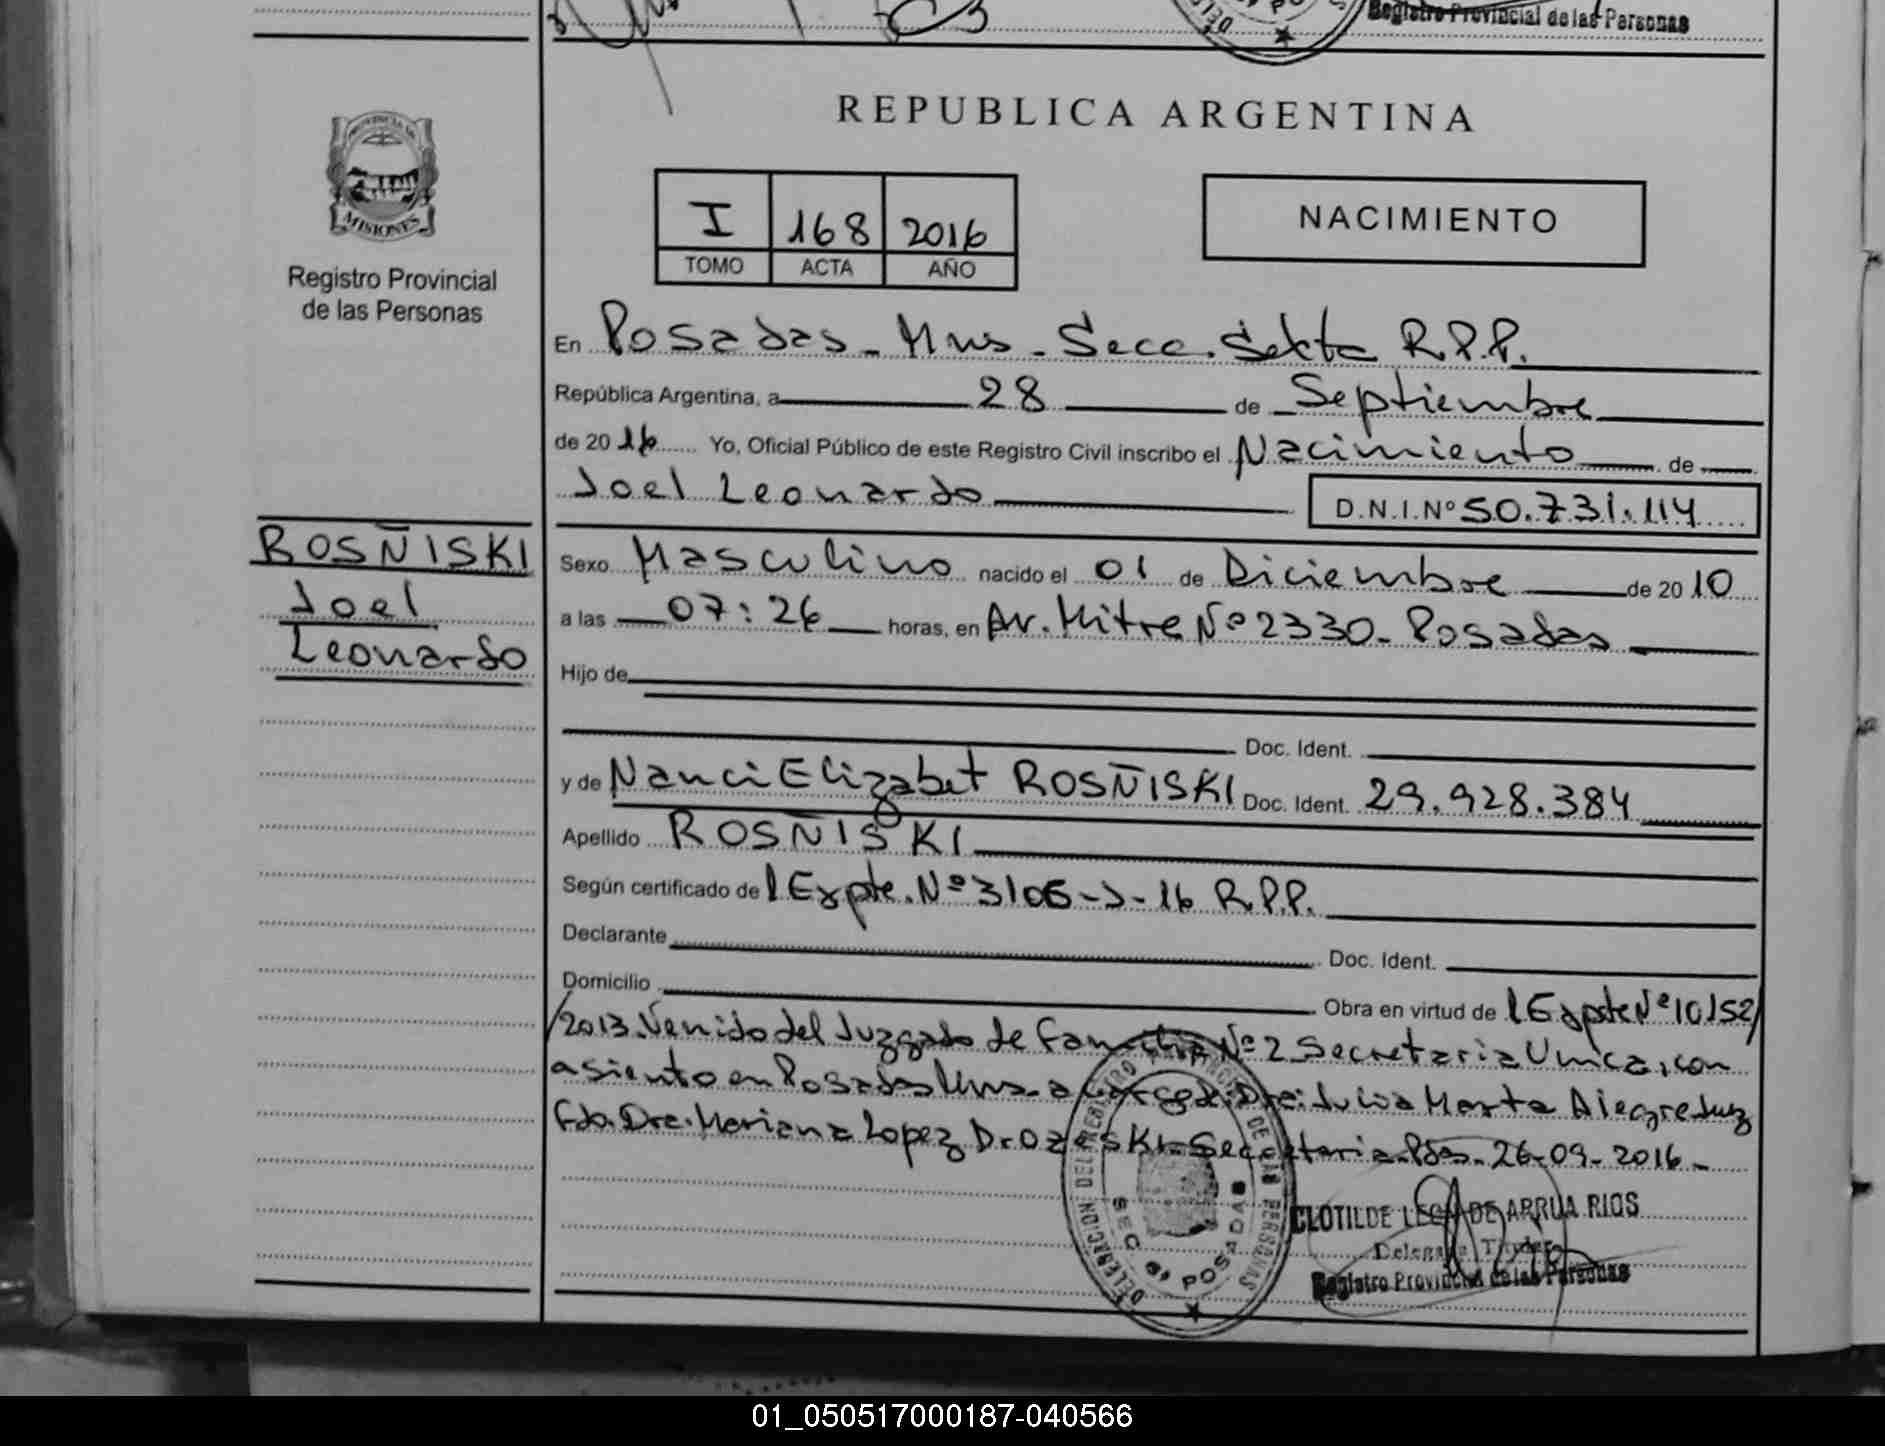 Registro Provincial de las Personas
PROVINCIA DE
MISIONES
Registro Provincial
de las Personas
REPUBLICA ARGENTINA
I 168 2016
TOMO ACTA AÑO
NACIMIENTO
En Posadas - Mns - Secc. Sexta R.P.P.
República Argentina, a 28 de Septiembre
de 20 16 Yo, Oficial Público de este Registro Civil inscribo el Nacimiento de
Joel Leonardo D.N.I.Nº 50.731.114
ROSÑISKI
Joel
Leonardo
Sexo Masculino nacido el 01 de Diciembre de 20 10
a las 07:26 horas, en Av. Mitre Nº 2330 - Posadas
Hijo de
Doc. Ident.
y de Nanci Elizabet ROSÑISKI Doc. Ident. 29.928.384
Apellido ROSÑISKI
Según certificado de l Expte. Nº 3106-J-16 R.P.P.
Declarante Doc. Ident.
Domicilio Obra en virtud de l Expte Nº 10152/
/2013. Venido del Juzgado de Familia Nº 2 Secretaria Unica, con
asiento en Posadas Mns. a cargo Marta Alegre Juez
Fdo. Dra. Mariana Lopez Secretaria - Pdas. 26-09-2016 -
DELEGACION DEL REGISTRO PROVINCIAL DE LAS PERSONAS
SEC 6ª POSADAS
CLOTILDE DE ARRUA RIOS
Delegada Titular
Registro Provincial de las Personas
01_050517000187-040566